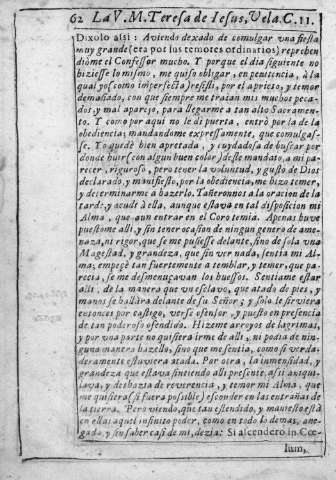 62 La V. M. Teresa de Iesus, Vela. C. 11.
Dixolo assi: Aviendo dexado de comulgar una fiesta
muy grande (era por lus temores ordinarios) reprehen
diòme el Confessor mucho. Y porque el dia siguiente no
hiziesse lo mismo, me quiso obligar, en penitencia, à la
qual yo (como imperfecta) resisti, por el aprieto, y temor
demasiado, con que siempre me traian mis muchos peca-
dos, y mal aparejo, para llegarme a tan alto Sacramen-
to. Y como por aqui no le di puerta, entrò por la de la
obediencia; mandandome expressamente, que comulgas-
se. Yo quedè bien apretada, y cuydadosa de buscar por
donde huir (con algun buen color) deste mandato, a mi pa-
recer, riguroso, pero tener la voluntad, y gusto de Dios
declarado, y manifiesto, por la obediencia, me hizo temer,
y determinarme a hazerlo. Tañeronnos a la oracion de la
tarde; y acudi à ella, aunque estava en tal disposicion mi
Alma, que aun entrar en el Coro temia. Apenas huve
puestome alli, y sin tener ocasion de ningun genero de ame-
naza, ni rigor, que se me pusiesse delante, sino de sola una
Magestad, y grandeza, que sin ver nada, sentia mi Al-
ma; empecè tan fuertemente a temblar, y temer, que pa-
recia, se me desmenuçavan los huessos. Sentiame estar
alli, de la manera que un esclavo, que atado de pies, y
manos se hallàra delante de su Señor; y solo le sirviera
entonces por castigo, verse ofensor, y puesto en presencia
de tan poderoso ofendido. Hizeme arroyos de lagrimas,
y por una parte no quisiera irme de alli, ni podia de nin-
guna manera hazello, sino que me sentia, como si verda-
deramente estuviera atada. Por otra, la inmensidad, y
grandeza que estava sintiendo alli presente, assi aniqui-
lava, y deshazia de reverencia, y temor mi Alma, que
me quisiera (si fuera possible) esconder en las entrañas de
la tierra. Pero viendo, que tan estendido, y manifiesto està
en ella aquel infinito poder, como en todo lo demas, ane-
gada, y sin saber casi de mi, dezia: Si ascendero in Coe-
lum,